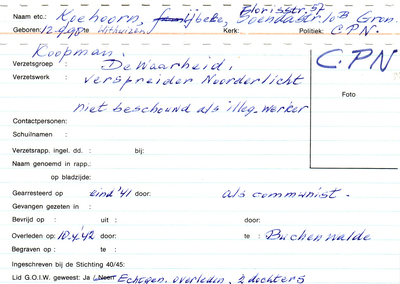 Florisstr. 57
Naam etc.: Kiehoorn, IJbele, Spendastr. 10B Gron.
Geboren: 12-4-98 te Uithuizen Kerk: Politiek: C.P.N.
Koopman. C.P.N
Verzetsgroep : De Waarheid.
Verzetswerk : verspreider Noorderlicht
Foto
niet beschouwd als illeg. werker
Contactpersonen:
Schuilnaam :
Verzetsrapp. ingel. dd. : bij:
Naam genoemd in rapp.:
op bladzijde:
Gearresteerd op eind '41 door: als communist.
Gevangen gezeten in :
Bevrijd op : uit : door:
Overleden op: 10.4.'42 door: te : Buchenwalde
Begraven op : te :
Ingeschreven bij de Stichting 40/45:
Lid G.O.I.W. geweest: Ja Neen Echtgen. overleden, 2 dochters